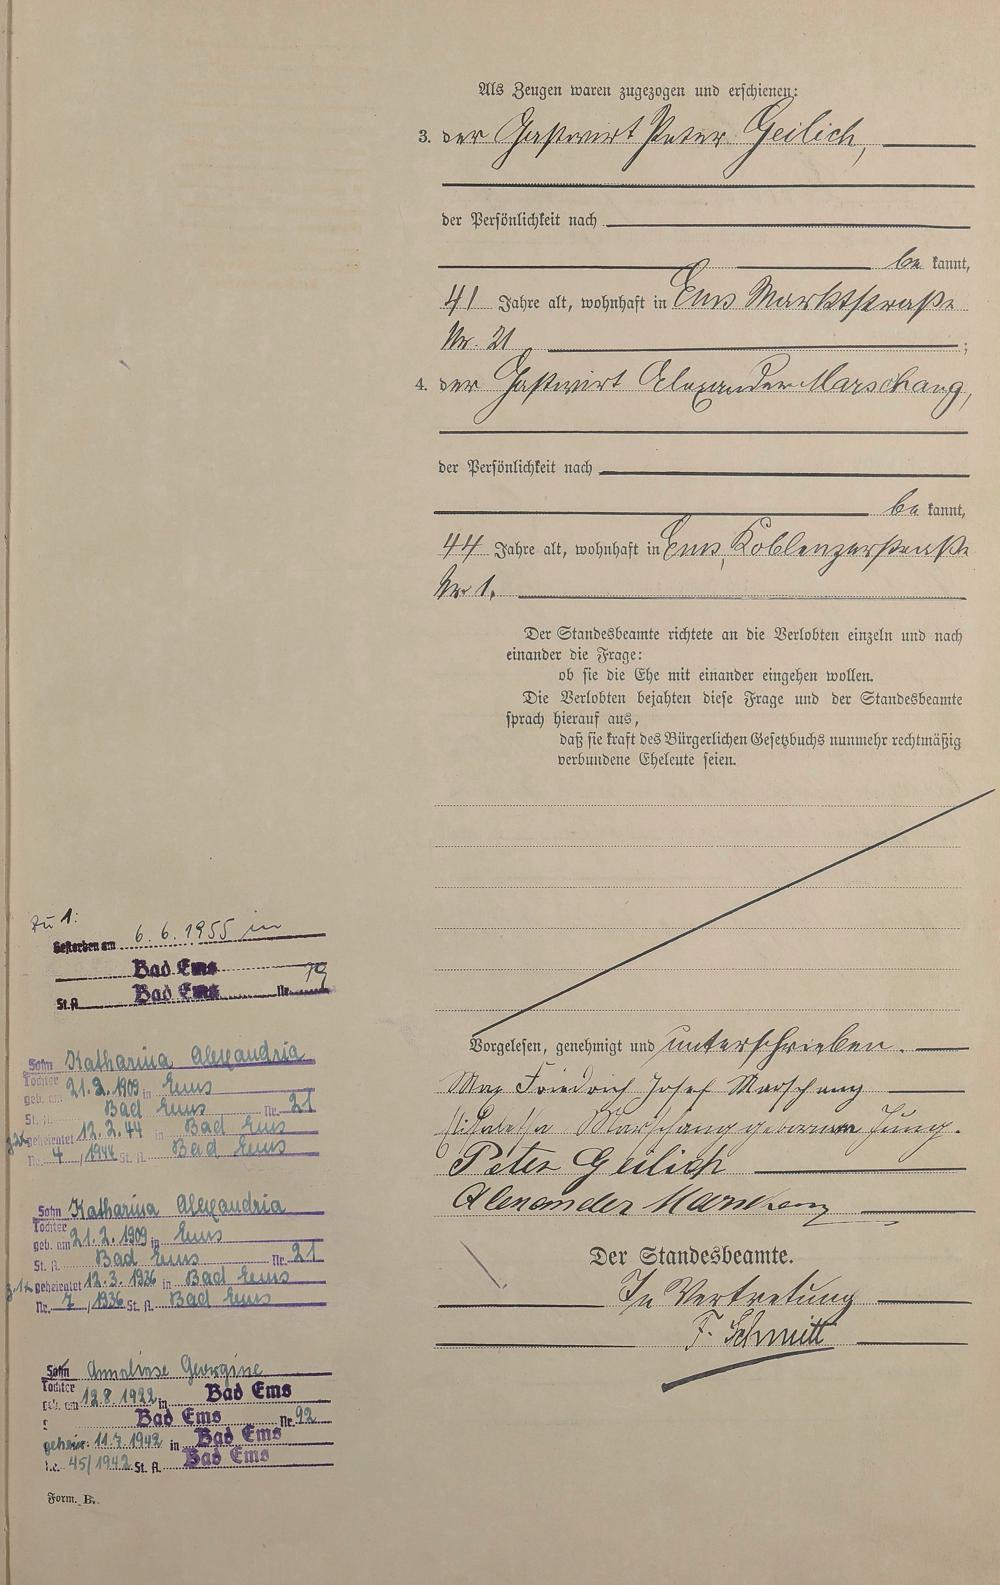 Als Zeugen waren zugezogen und erschienen:
3. der Gastwirt Peter Geilich,
der Persönlichkeit nach
be kannt,
41 Jahre alt, wohnhaft in Ems Marktstraße
Nr. 21 ;
4. der Gastwirt Alexander Marschang,
der Persönlichkeit nach
be kannt,
44 Jahre alt, wohnhaft in Ems, Koblenzerstraße
Nr 1.
Der Standesbeamte richtete an die Verlobten einzeln und nach
einander die Frage:
ob sie die Ehe mit einander eingehen wollen.
Die Verlobten bejahten diese Frage und der Standesbeamte
sprach hierauf aus,
daß sie kraft des Bürgerlichen Gesetzbuchs nunmehr rechtmäßig
verbundene Eheleute seien.
Vorgelesen, genehmigt und unterschrieben.
Max Friedrich Josef Marschang
Elisabetha Marschang geborene Jung.
Peter Geilich
Alexander Marschang
Der Standesbeamte.
In Vertretung
F. Schmitt
Zu 1:
Gestorben am 6.6.1955 in
Bad Ems
St. A. Bad Ems Nr. 79
Sohn Katharina Alexandria
Tochter
geb. am 21.2.1909 in Ems
St. A. Bad Ems Nr. 21
geheiratet 12.2.44 in Bad Ems
Nr. 4 /1944 St. A. Bad Ems
Sohn Katharina Alexandria
Tochter
geb. am 21.2.1909 in Ems
St. A. Bad Ems Nr. 21
geheiratet 12.3.1936 in Bad Ems
Nr. 7 /1936 St. A. Bad Ems
Sohn Anneliese Georgine
Tochter
geb. am 12.8.1922 in Bad Ems
Bad Ems Nr. 92
geheir. 11.7.1942 in Bad Ems
45/1942 St. A. Bad Ems
Form. B.